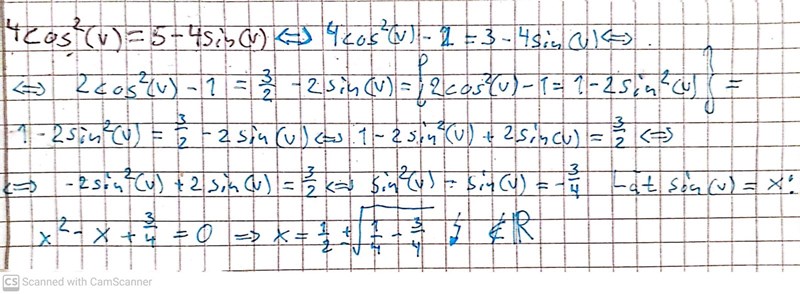 4cos²(v) = 5 - 4sin(v) ⇔ 4cos²(v) - 2 = 3 - 4sin(v) ⇔
⇔ 2cos²(v) - 1 = 3/2 - 2sin(v) = {2cos²(v) - 1 = 1 - 2sin²(v)} =
1 - 2sin²(v) = 3/2 - 2sin(v) ⇔ 1 - 2sin²(v) + 2sin(v) = 3/2 ⇔
⇔ -2sin²(v) + 2sin(v) = 3/2 ⇔ sin²(v) - sin(v) = -3/4 Låt sin(v) = x:
x² - x + 3/4 = 0 ⇒ x = 1/2 ± √(1/4 - 3/4) ↯ ∉ ℝ
CS Scanned with CamScanner